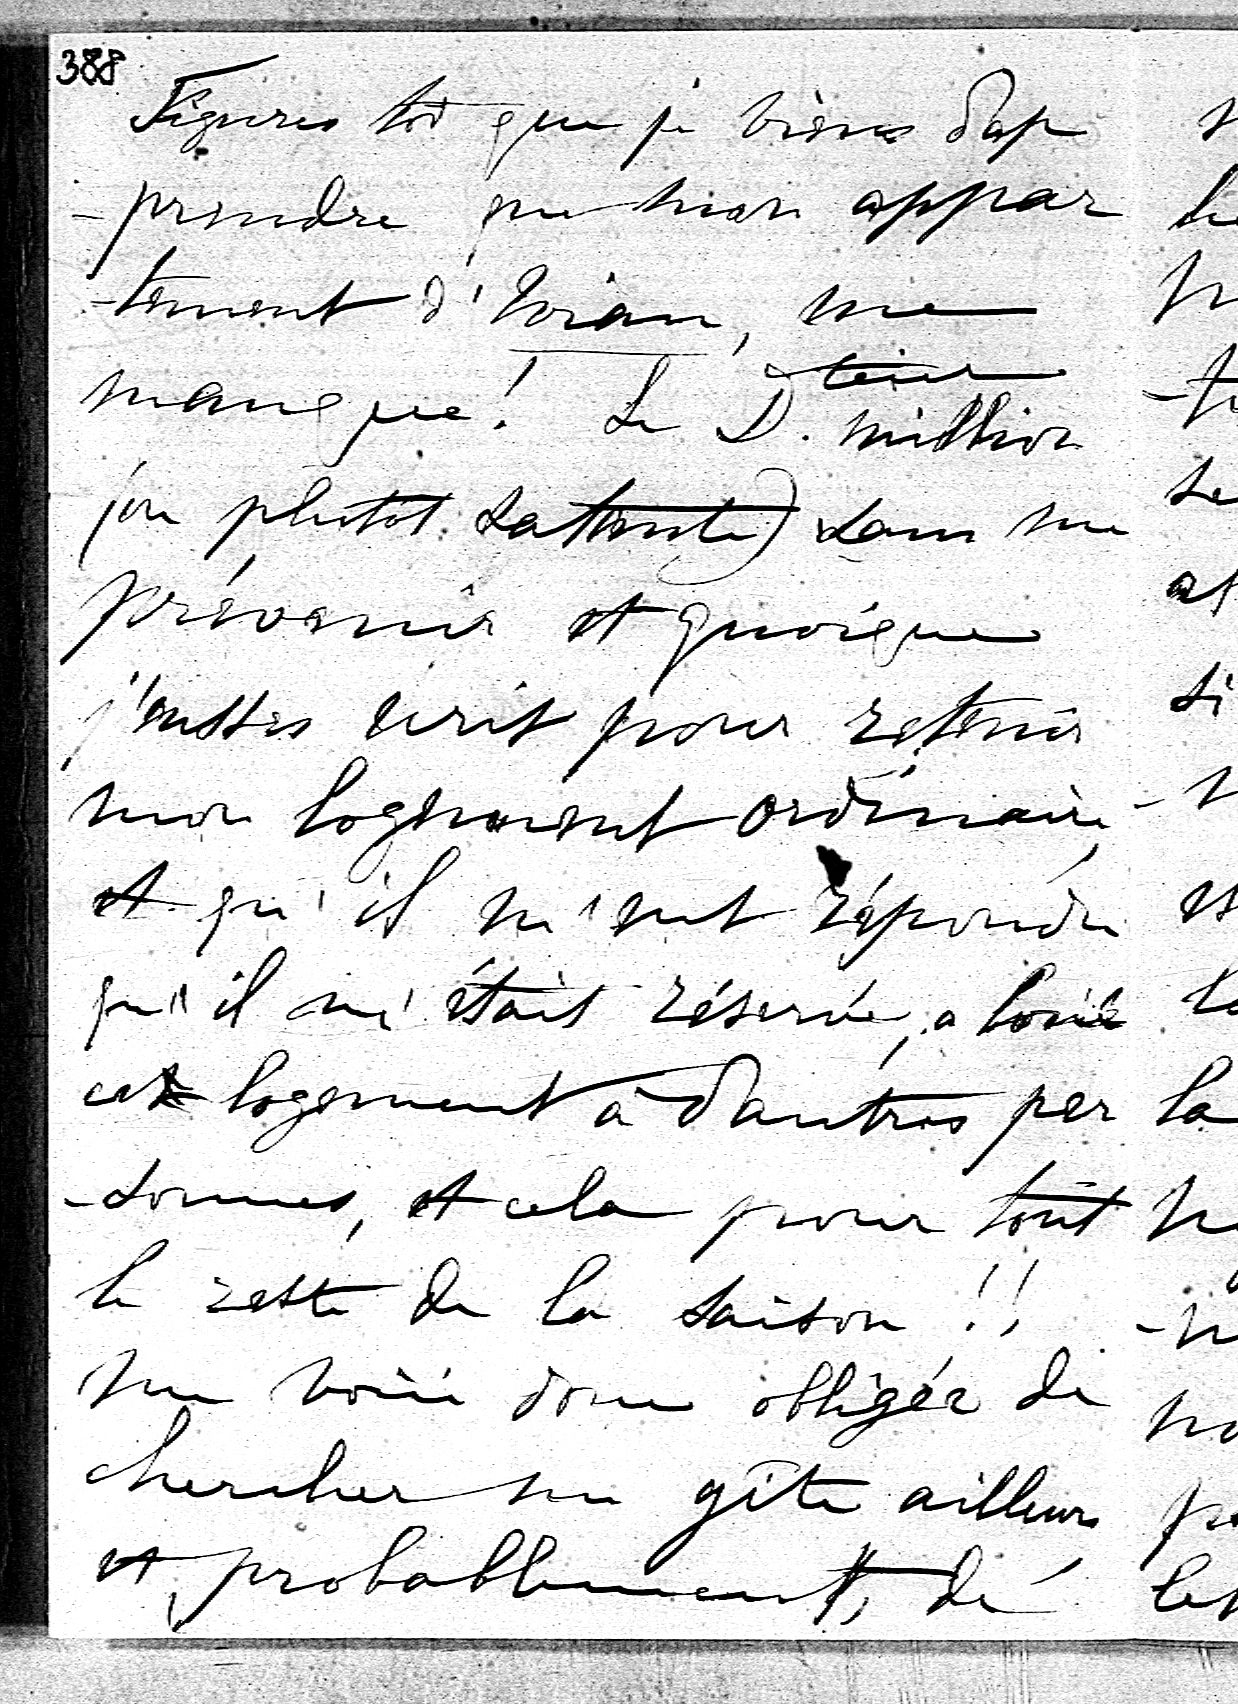 388
Figures toi que je viens d'ap
-prendre que mon appar
-tement d'Évian, me
manque! Le Dteur million
(ou plutôt Satante) sans me
prévenir et quoique
j'eusses écrit pour retenir
mon logement ordinaire,
et qu'il m'eut répondu
qu'il m'était réservé, a loué
cet logement à d'autres per
-sonnes, et cela pour tout
le reste de la saison!!
me voici donc obligée de
chercher un gîte ailleurs
et, probablement, de